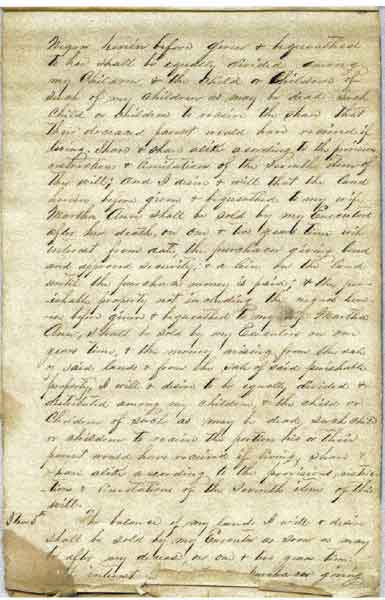 Negroes herein before given & bequeathed
to her shall be equally divided among
my Children & the Child or Children of
such of my children as may be dead such
Child or Children to receive the share that
their deceased parent would have received if
living, share & share alike according to the provisions
restrictions & limitations of the seventh item of
this will; And I desire & will that the land
herein before given & bequeathed to my wife
Martha Ann shall be sold by my Executors
after her death, on one & two years time with
interest from date, the purchaser giving bond
and approved security, & a lien on the land
until the purchase money is paid; & the per-
ishable property not including the negroes here-
in before given & bequeathed to my wife Martha
Ann, shall be sold by my Executors on one
years time, & the money arising from the sale
of said lands & from the sale of said perishable
property I will & desire to be equally divided &
distributed among my children & the child or
Children of such as may be dead, such child
or children to receive the portion his or their
parent would have received if living, share &
share alike according to the provisions, restric-
tions & limitations of the seventh item of this
will.
Item 5th The balance of my lands I will & desire
shall be sold by my Executors as soon as may
be after my decease on one & two years time
with interest purchaser giving